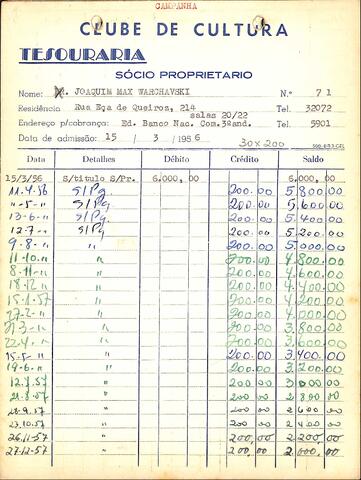 CAMPANHA
CLUBE DE CULTURA
TESOURARIA
SÓCIO PROPRIETARIO
Nome: JOAQUIM MAX WARCHAVSKI N.º 71
Residência Rua Eça de Queiros, 214 Tel. 32072
salas 20/22
Endereço p/cobrança: Ed. Banco Nac. Com.3ºand. Tel. 5901
Data de admissão: 15 / 3 / 1956 30x200
Data Detalhes Débito Crédito Saldo
15/3/56 S/titulo S/Pr. 6.000,00 6.000,00
11.4.56 S/Pg 200.00 5.800.00
"-5-" S/Pg. 200.00 5.600.00
13-6-" S/Pg. 200.00 5.400.00
12-7-" S/Pg 200.00 5.200.00
9-8-" " 200.00 5.000.00
11-10-" " 200.00 4.800.00
8-11-" " 200.00 4.600.00
18-12-" " 200.00 4.400.00
15-1-57 " 200.00 4.200.00
" 200.00 4.000.00
" 200.00 3.800.00
22-4-" " 200.00 3.600.00
15-5-" " 200.00 3.400.00
19-6-" " 200.00 3.200.00
12.7.57 " 200 00 3 000 00
21.8.57 " 200 00 2 800 00
28-9.57 " 200 00 2 600 00
23.10.57 " 200 00 2 400 00
26-11-57 " 200,00 2.200,00
27-12-57 " 200,00 2.000,00